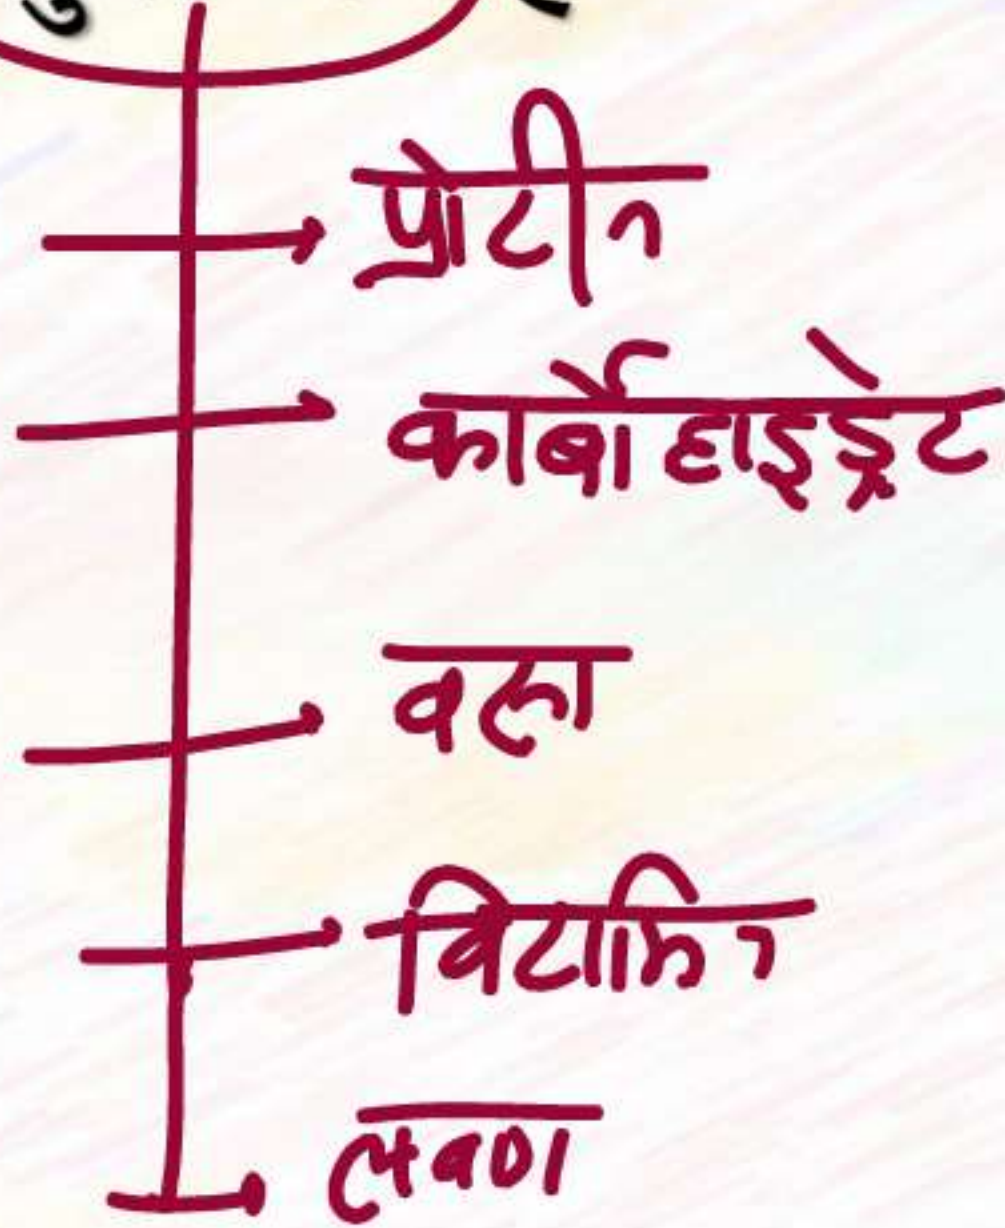 प्रोटीन
कार्बोहाइड्रेट
वसा
विटामिन
लवण